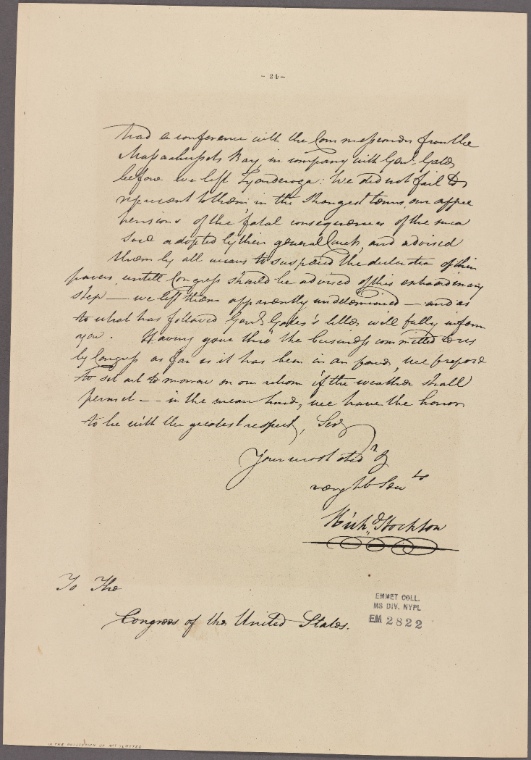 - 24 -
had a conference with the Commissioners from the
Massachusets Bay, in company with Genl. Gates
before we left Tyonderoga. We did not fail to
represent to them in the strongest terms our appre
hensions of the fatal consequences of the mea
sure adopted by their general Court, and advised
them by all means to suspend the execution of their
powers, untill Congress should be advised of this extraordinary
step — we left them apparently undetermined — and as
to what has followed Genl. Gates's letter will fully inform
you. Having gone thro' the business committed to us
by Congress as far as it has been in our power, we propose
to set out to morrow on our return if the weather shall
permit — in the mean time, we have the honor
to be with the greatest respect,
Your most obedt. &
very hble Servts
Richd. Stockton
To The
Congress of the United States.
EMMET COLL.
MS DIV. NYPL
EM 2822